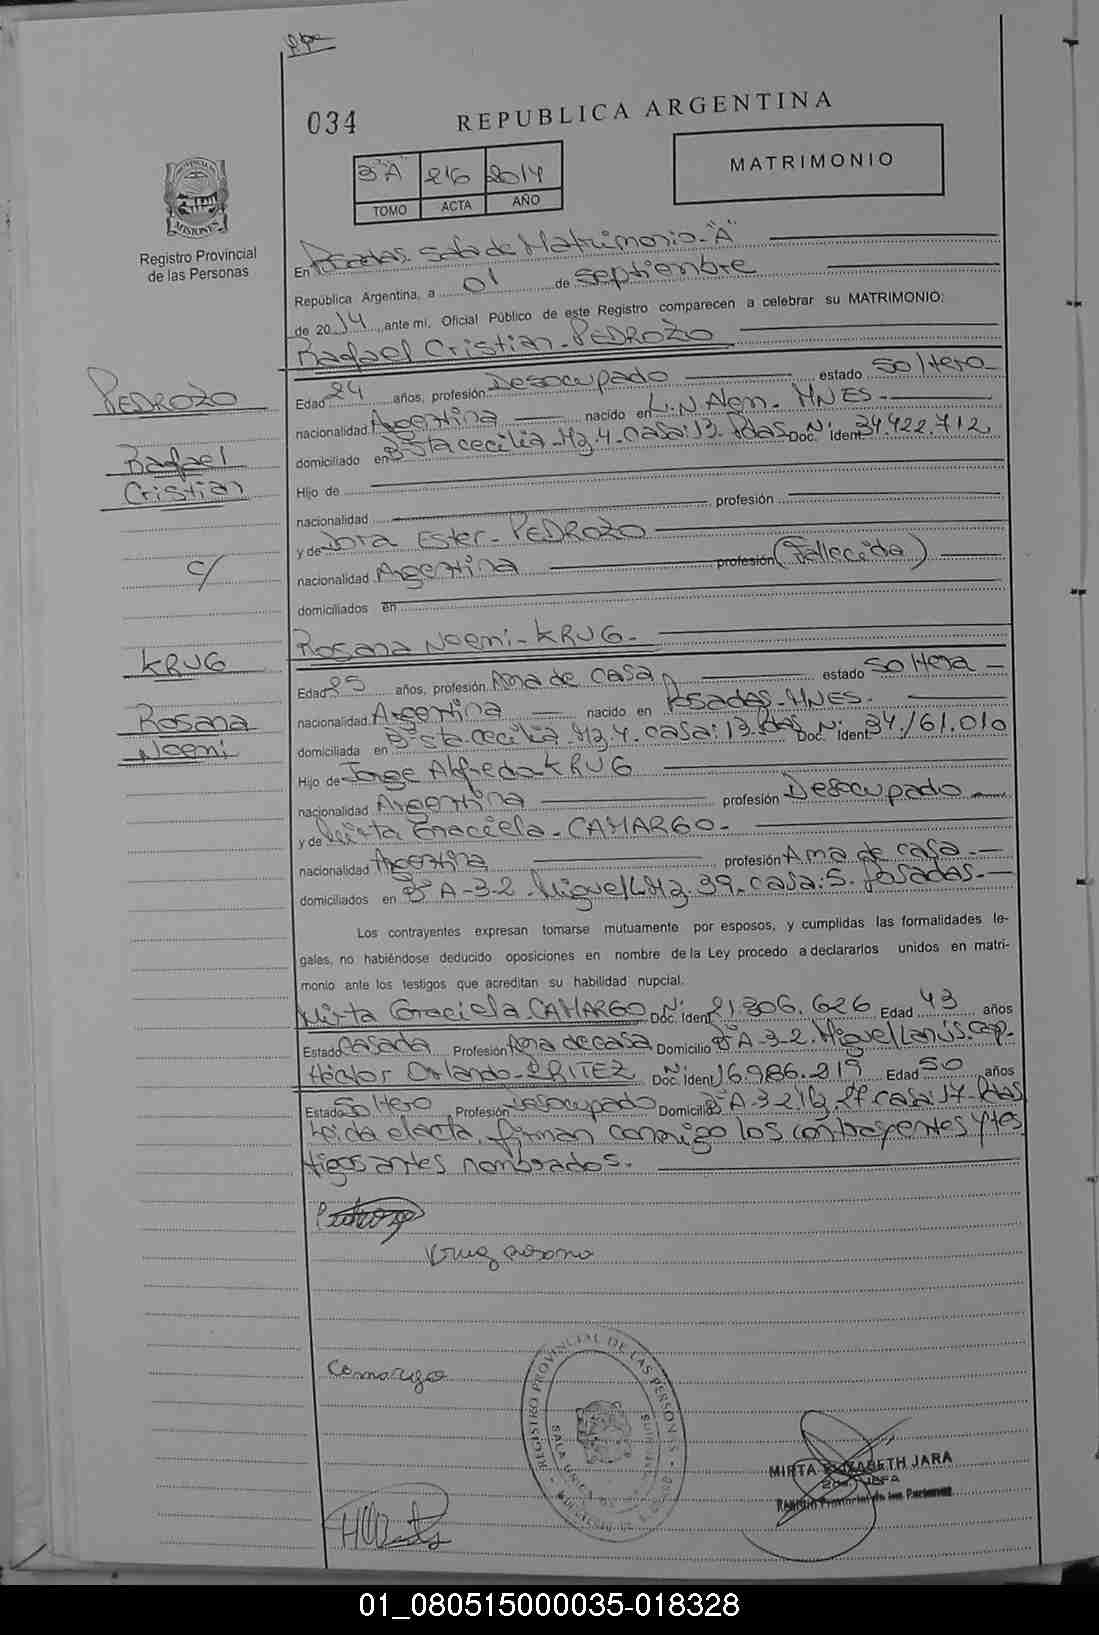 034
REPUBLICA ARGENTINA
MATRIMONIO
3º"A" 216 2014
TOMO ACTA AÑO
PROVINCIA
MISIONES
Registro Provincial
de las Personas
En Posadas. Sala de Matrimonio-"A"
República Argentina, a 01 de septiembre
de 2014, ante mí, Oficial Público de este Registro comparecen a celebrar su MATRIMONIO:
Rafael Cristian-PEDROZO
PEDROZO
Rafael
Cristian
c/
KRUG
Rosana
Noemi
Edad 24 años, profesión Desocupado estado Soltero
nacionalidad Argentina nacido en L.N Alem. MNES.
domiciliado en Bº Sta cecilia. Mz. 4. casa: 13. Pdas Doc. Nº Ident 34.422.712
Hijo de
nacionalidad profesión
y de Dora Ester-PEDROZO
nacionalidad Argentina profesión (Fallecida)
domiciliados en
Rosana Noemi-KRUG-
Edad 25 años, profesión Ama de casa estado Soltera
nacionalidad Argentina nacido en Posadas-MNES.
domiciliada en Bº Sta. cecilia. Mz. 4. casa: 13. Pdas Doc. Nº Ident 34.161.010
Hijo de Jorge Alfredo-KRUG
nacionalidad Argentina profesión Desocupado
y de Mirta Graciela-CAMARGO-
nacionalidad Argentina profesión Ama de casa.
domiciliados en Bº A-3-2. Miguel L. Mz. 39. casa: 5. Posadas.
Los contrayentes expresan tomarse mutuamente por esposos, y cumplidas las formalidades le-
gales, no habiéndose deducido oposiciones en nombre de la Ley procedo a declararlos unidos en matri-
monio ante los testigos que acreditan su habilidad nupcial:
Mirta Graciela CAMARGO Doc. Nº Ident 21.306.626 Edad 43 años
Estado Casada Profesión Ama de casa Domicilio Bº A-3-2. Miguel Lanús. cap.
Héctor Orlando-BRITEZ Doc. Nº Ident 16.986.219 Edad 50 años
Estado Soltero Profesión Desocupado Domicilio Bº A-3-2 casa: 17-Pdas
Leida el acta, firman conmigo los contrayentes y tes
tigos antes nombrados.
Pedrozo
Krug Rosana
Camargo
REGISTRO PROVINCIAL DE LAS PERSONAS
MIRTA ELIZABETH JARA
2da. JEFA
Registro Provincial de las Personas
01_080515000035-018328